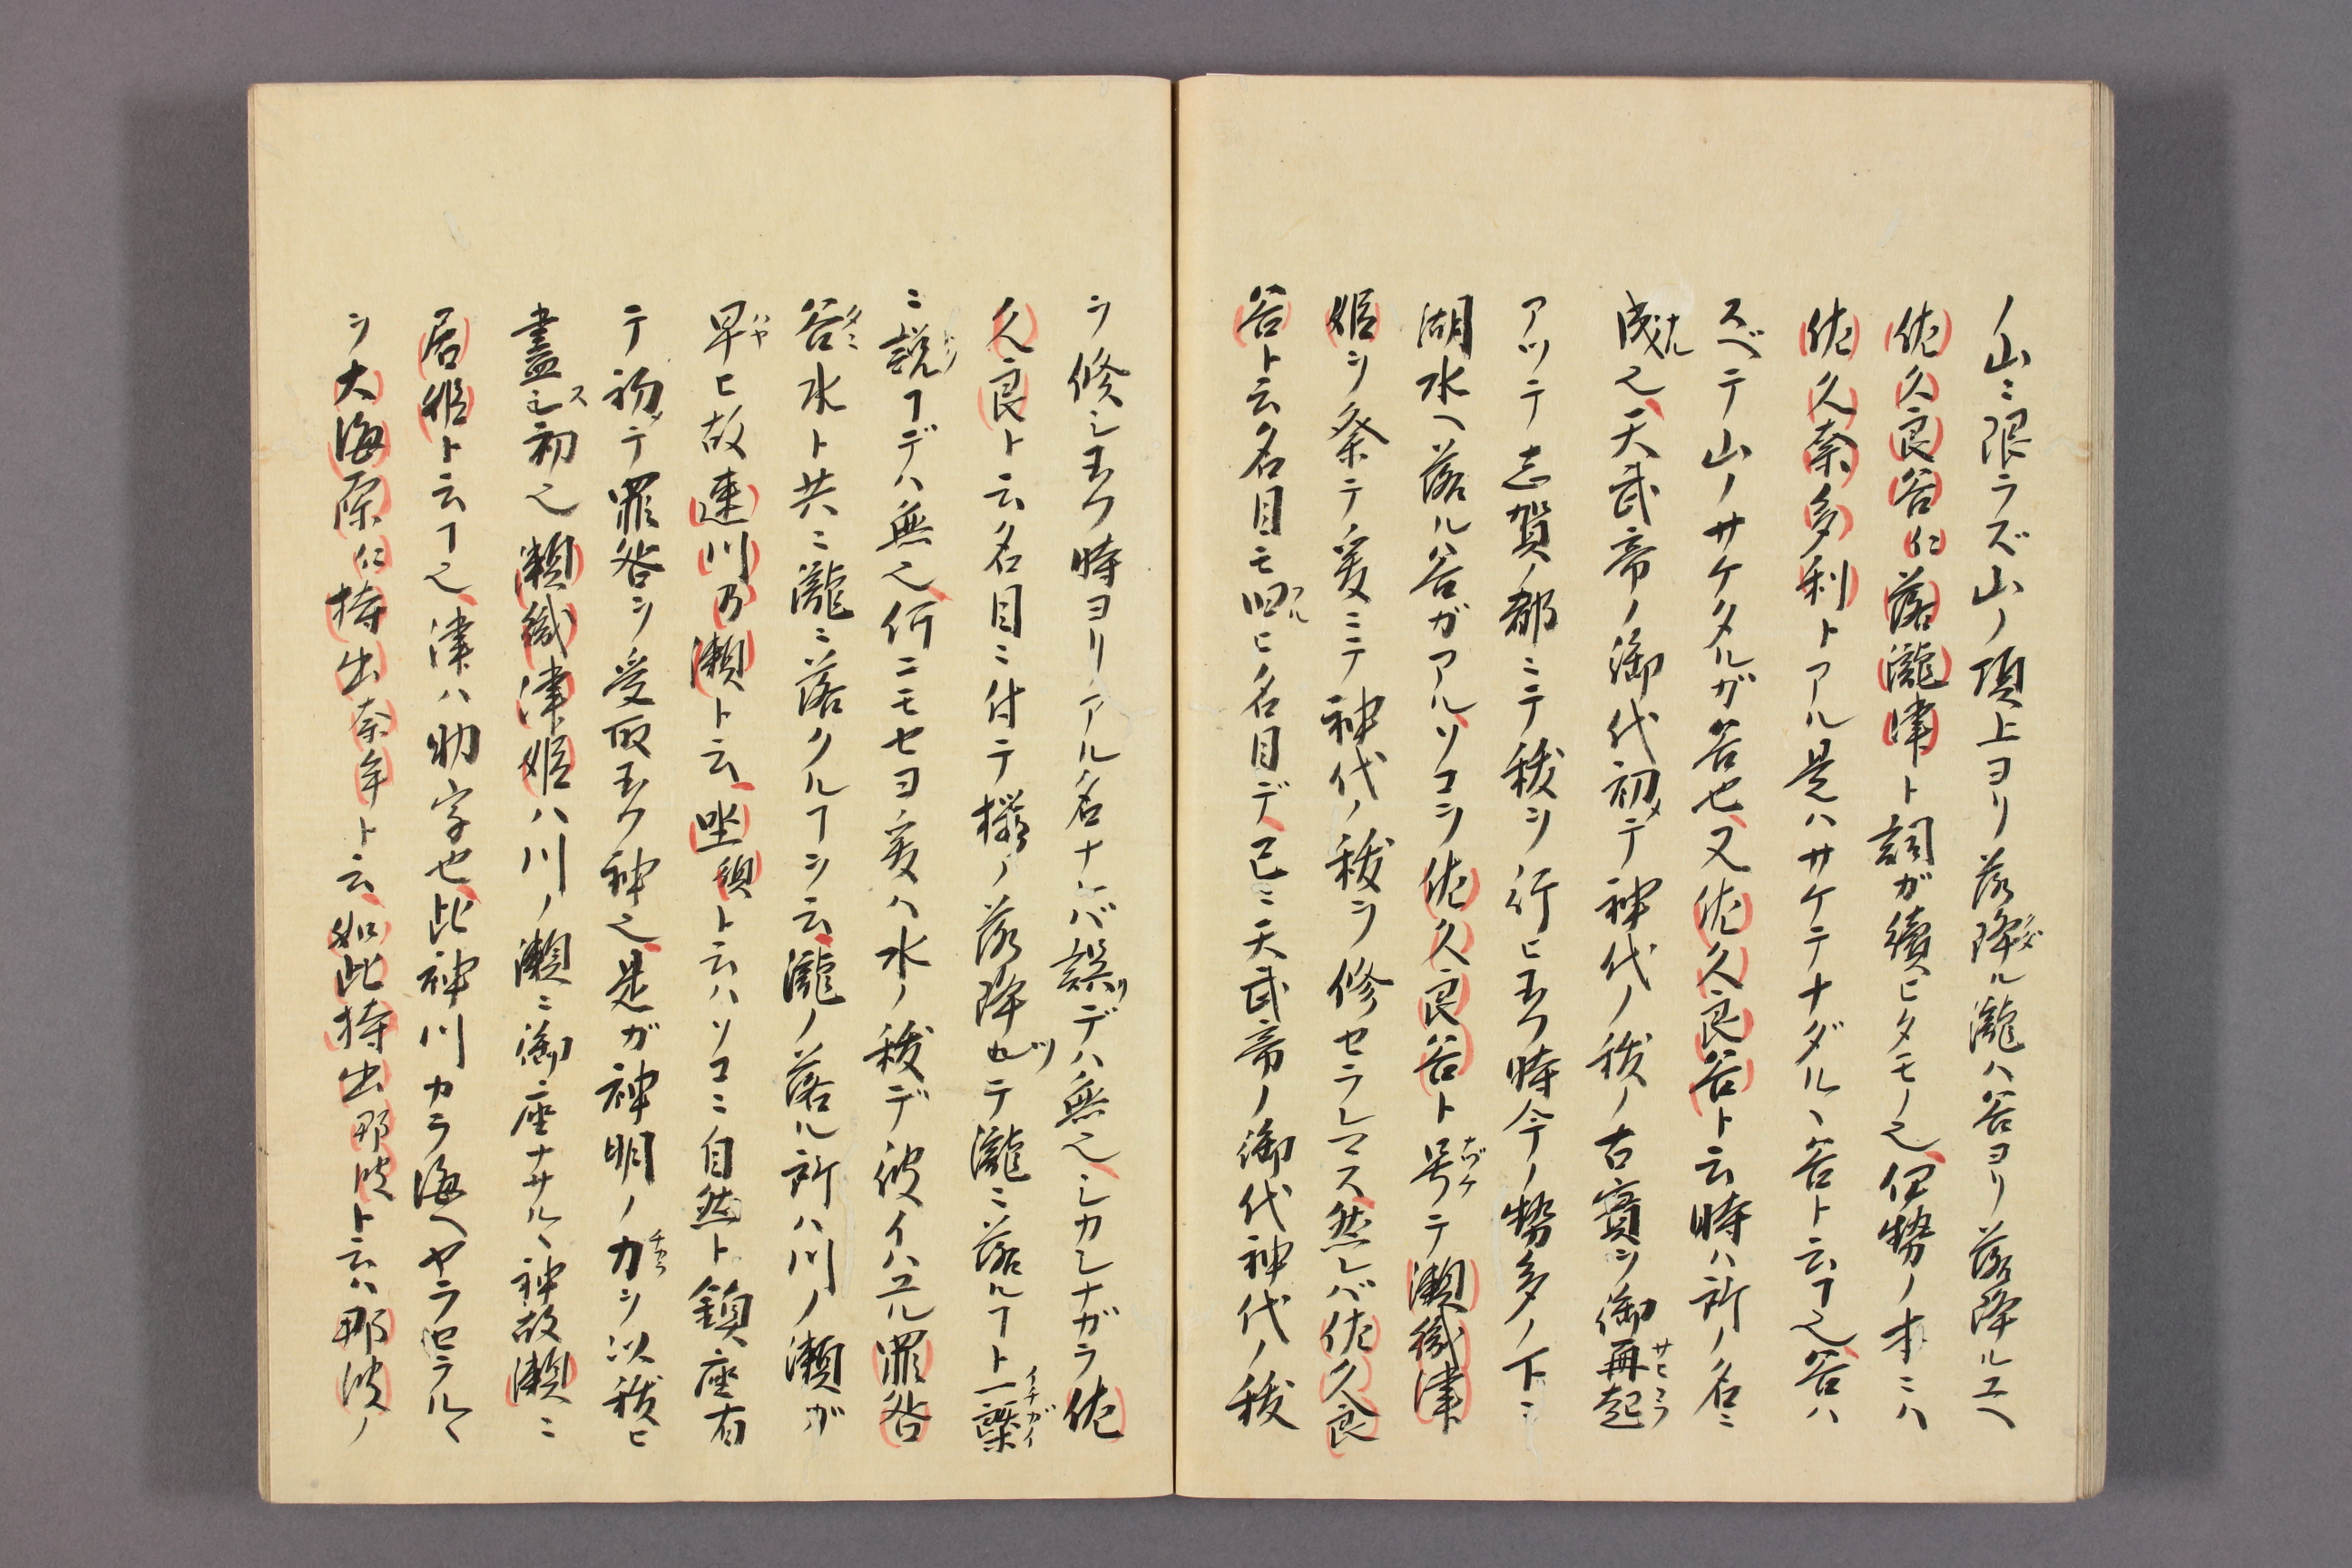 ノ山ニ限ラズ山ノ頂上ヨリ落降ル瀧ハ谷ヨリ落降ルユヘ
佐久良谷仁落瀧津ト詞ガ續ヒタモノ也伊勢ノ本ニハ
佐久奈多利トアル是ハサケテナダルヽ谷ト云ヿ也谷ハ
スベテ山ノサケタルガ谷也又佐久良谷ト云時ハ所ノ名ニ
成ナル也天武帝ノ御代初メテ神代ノ祓ノ古實ヲ御再起サヒコフ
アツテ志賀ノ郡ニテ祓ヲ行ヒ玉フ時今ノ勢多ノ下ニ
湖水ヘ落ル谷ガアルソコヲ佐久良谷ト号ナヅケテ瀬織津
姫ヲ祭テ爰ニテ神代ノ祓ヲ修セラレマス然レバ佐久良
谷ト云名目モ旧フルヒ名目デ已ニ天武帝ノ御代神代ノ祓
ヲ修シ玉フ時ヨリアル名ナレバ誤リデハ無也シカシナガラ佐
久良ト云名目ニ付テ櫻ノ落降ツテ瀧ニ落ルヿト一槩イチガイ
ニ説トクヿデハ無也何ニモセヨ爰ハ水ノ祓デ彼イハユル罪咎
谷タニ水ト共ニ瀧ニ落クルヿヲ云瀧ノ落ル所ハ川ノ瀬ガ
早ハヤヒ故速川乃瀬ト云坐須ト云ハソコニ自然ト鎮座有
テ初テ罪咎ヲ受取玉フ神也是ガ神明ノ力チカラヲ以祓ヒ
盡スシ初也瀬織津姫ハ川ノ瀬ニ御座ナサルヽ神故瀬ニ
居姫ト云ヿ也津ハ助字也此神川カラ海ヘヤラセラルヽ
ヲ大海原仁持出奈牟ト云如此持出那波ト云ハ那波ノ